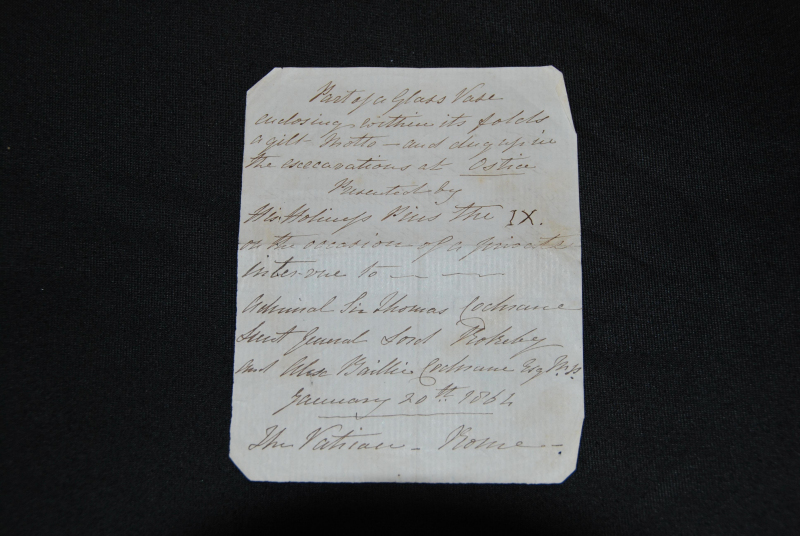 Part of a Glass Vase
enclosing within its folds
a gilt Motto – and dug up in
the excavations at Ostia
Presented by
His Holiness Pius the IX.
on the occasion of a private
intervue to
Admiral Sir Thomas Cochrane
Lieut General Lord Rokeby
and Alex Baillie Cochrane Esq M.P.
January 20th 1864
The Vatican – Rome –